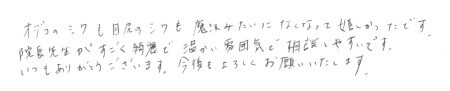 オデコのシワも目尻のシワも魔法みたいになくなって嬉しかったです。
院長先生がすごく綺麗で温かい雰囲気で相談しやすいです。
いつもありがとうございます。今後も上ろしくお願いいたします。